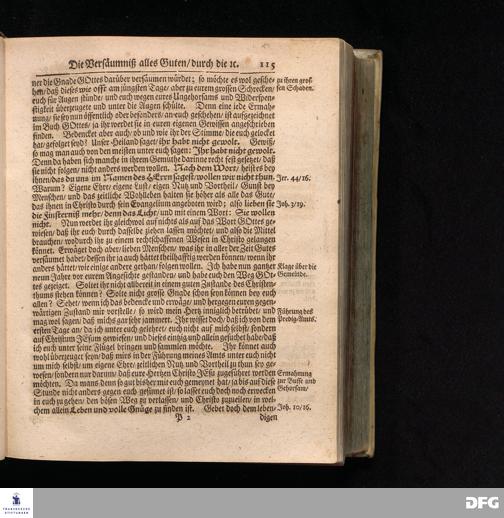 Die Versäumniß alles Guten/durch die ꝛc. 115
ner die Gnade GOttes darüber versäumen würdet; so möchte es wol gesche- zu ihren gros-
hen/ daß dieses wie offt am jüngsten Tage/ aber zu eurem grossen Schrecken/ sen Schaden.
euch für Augen stünde/ und euch wegen eures Ungehorsams und Widerspen-
stigkeit überzeugete und unter die Augen schülte. Denn eine jede Ermah-
nung/ sie sey nun öffentlich oder besonders/ an euch geschehen/ ist aufgezeichnet
im Buch GOttes/ ja ihr werdet sie in euren eigenen Gewissen angeschrieben
finden. Bedencket aber auch/ ob und wie ihr der Stimme/ die euch gelocket
hat/ gefolget seyd? Unser Heiland saget/ ihr habt nicht gewolt. Gewiß/
so mag man auch von den meisten unter euch sagen: Ihr habt nicht gewolt.
Denn da haben sich manche in ihrem Gemüthe darinne recht fest gesetzet/ daß
sie nicht folgen/ nicht anders werden wollen. Nach dem Wort/ heist es bey
ihnen/ das du uns im Namen des HErrn sagest/ wollen wir nicht thun. Jer. 44/16.
Warum? Eigene Ehre/ eigene Lust/ eigen Nutz und Vortheil/ Gunst bey
Menschen/ und das zeitliche Wohlleben halten sie höher als alle das Gute/
das ihnen in Christo durch sein Evangelium angeboten wird; also lieben sie Joh. 3/19.
die Finsterniß mehr/ denn das Licht/ und mit einem Wort: Sie wollen
nicht. Nun werdet ihr gleichwol auf nichts als auf das Wort GOttes ge-
wiesen/ daß ihr euch durch dasselbe ziehen lassen möchtet/ und also die Mittel
brauchen/ wodurch ihr zu einem rechtschaffenen Wesen in Christo gelangen
könnet. Erwäget doch aber/ lieben Menschen/ was ihr in aller der Zeit Gutes
versäumet habet/ dessen ihr ja auch hättet theilhafftig werden können/ wenn ihr
anders hättet/ wie einige andere gethan/ folgen wollen. Ich habe nun gantzer Klage über die
neun Jahre vor eurem Angesichte gestanden/ und habe euch den Weg GOt- Gemeinde.
tes gezeiget. Soltet ihr nicht allbereit in einem guten Zustande des Christen-
thums stehen können? Solte nicht grosse Gnade schon seyn können bey euch
allen? Sehet/ wenn ich das bedencke und erwäge/ und hergegen euren gegen-
wärtigen Zustand mir vorstelle/ so wird mein Hertz inniglich betrübet/ und Führung des
mag wol sagen/ daß mich's gar sehr jammert. Ihr wisset doch/ daß ich von dem Predig-Amts.
ersten Tage an/ da ich unter euch gelehret/ euch nicht auf mich selbst/ sondern
auf Christum JEsum gewiesen/ und dieses einzig und allein gesuchet habe/ daß
ich euch unter seine Flügel bringen und sammlen möchte. Ihr könnet auch
wohl überzeuget seyn/ daß mirs in der Führung meines Amts unter euch nicht
um mich selbst/ um eigene Ehre/ zeitlichen Nutz und Vortheil zu thun sey ge-
wesen/ sondern nur darum/ daß eure Hertzen Christo JEsu zugeführet werden Ermahnung
möchten. Da mans denn so gut bisher mit euch gemeynet hat/ ja bis auf diese zur Busse und
Stunde nicht anders gegen euch gesinnet ist/ so lasset euch doch noch erwecken Gehorsam/
in euch zu gehen/ den bösen Weg zu verlassen/ und Christo zuzueilen/ in wel-
chem allein Leben und volle Gnüge zu finden ist. Gebet doch dem leben- Joh. 10/16.
P 2 digen
FRANCKESCHE
STIFTUNGEN
DFG